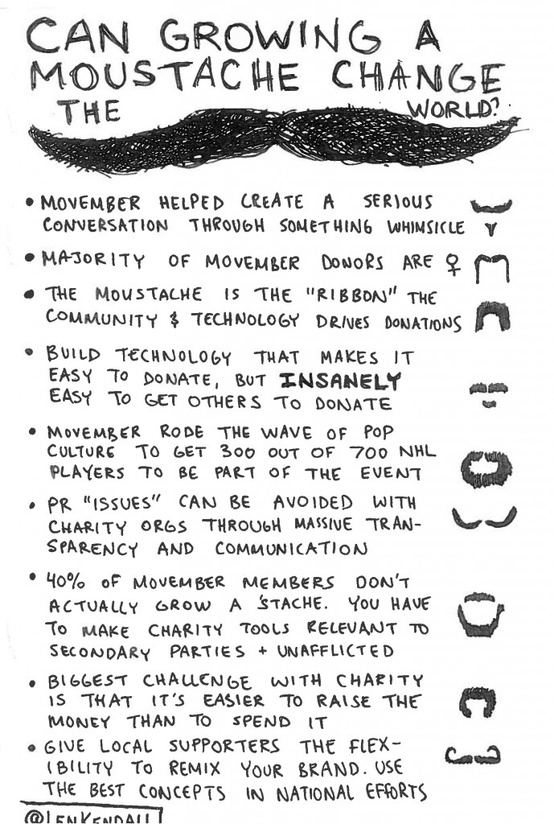 CAN GROWING A
MOUSTACHE CHANGE
THE WORLD?
• MOVEMBER HELPED CREATE A SERIOUS
CONVERSATION THROUGH SOMETHING WHIMSICLE
• MAJORITY OF MOVEMBER DONORS ARE ♀
• THE MOUSTACHE IS THE "RIBBON" THE
COMMUNITY & TECHNOLOGY DRIVES DONATIONS
• BUILD TECHNOLOGY THAT MAKES IT
EASY TO DONATE, BUT INSANELY
EASY TO GET OTHERS TO DONATE
• MOVEMBER RODE THE WAVE OF POP
CULTURE TO GET 300 OUT OF 700 NHL
PLAYERS TO BE PART OF THE EVENT
• PR "ISSUES" CAN BE AVOIDED WITH
CHARITY ORGS THROUGH MASSIVE TRAN-
SPARENCY AND COMMUNICATION
• 40% OF MOVEMBER MEMBERS DON'T
ACTUALLY GROW A 'STACHE. YOU HAVE
TO MAKE CHARITY TOOLS RELEVANT TO
SECONDARY PARTIES + UNAFFLICTED
• BIGGEST CHALLENGE WITH CHARITY
IS THAT IT'S EASIER TO RAISE THE
MONEY THAN TO SPEND IT
• GIVE LOCAL SUPPORTERS THE FLEX-
IBILITY TO REMIX YOUR BRAND. USE
THE BEST CONCEPTS IN NATIONAL EFFORTS
@LENKENDALL